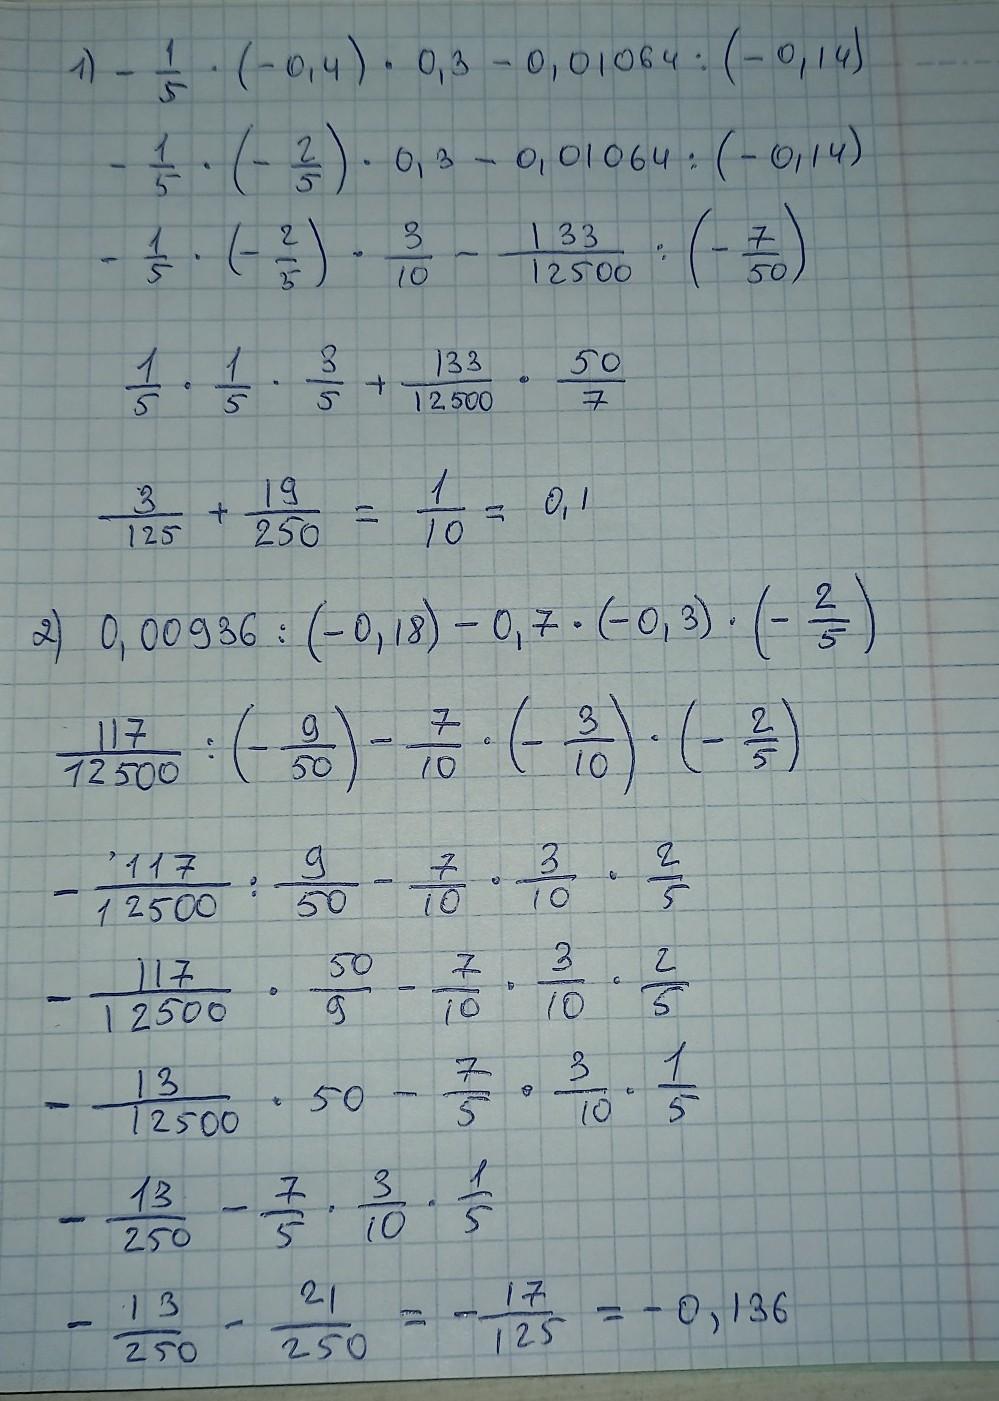 1) - 1/5 · (-0,4) · 0,3 - 0,01064 : (-0,14)
- 1/5 · (- 2/5) · 0,3 - 0,01064 : (-0,14)
- 1/5 · (- 2/5) · 3/10 - 133/12500 : (- 7/50)
1/5 · 1/5 · 3/5 + 133/12500 · 50/7
3/125 + 19/250 = 1/10 = 0,1
2) 0,00936 : (-0,18) - 0,7 · (-0,3) · (- 2/5)
117/12500 : (- 9/50) - 7/10 · (- 3/10) · (- 2/5)
- 117/12500 : 9/50 - 7/10 · 3/10 · 2/5
- 117/12500 · 50/9 - 7/10 · 3/10 · 2/5
- 13/12500 · 50 - 7/5 · 3/10 · 1/5
- 13/250 - 7/5 · 3/10 · 1/5
- 13/250 - 21/250 = - 17/125 = -0,136